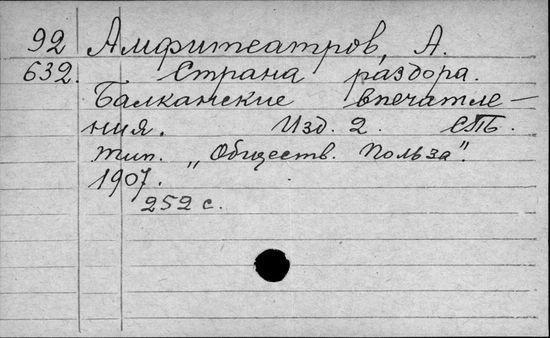 92 Амфитеатров, А.
632. Страна раздора.
Балканские впечатле-
ния. Изд. 2. СПб.
тип. „Обществ. Польза".
1907.
252 с.